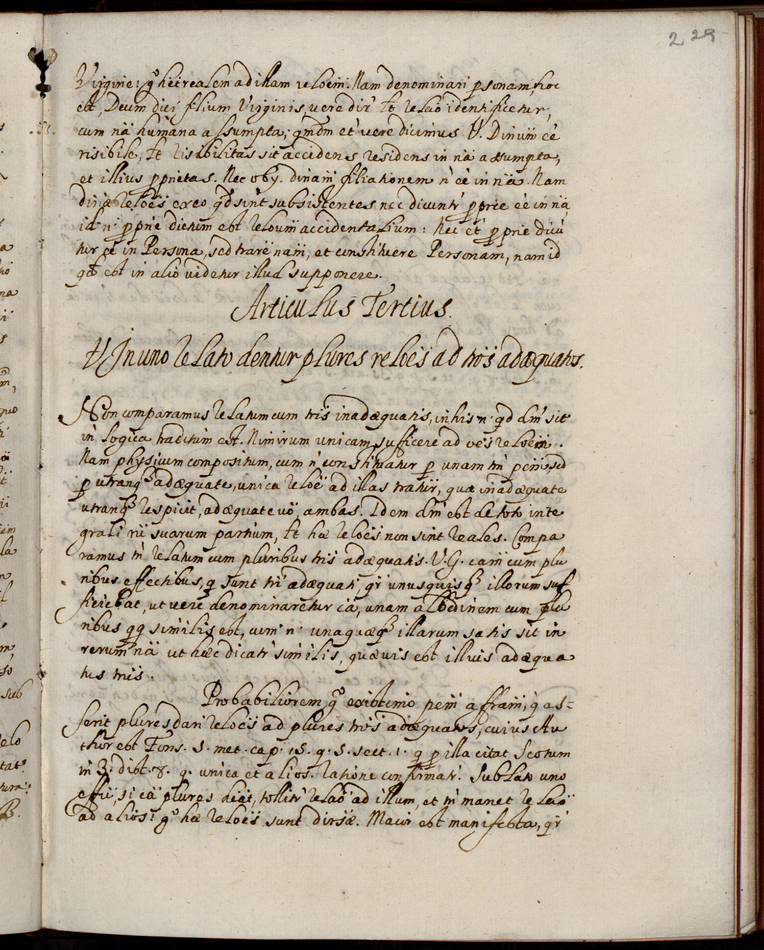 229
Virginē: g° hēt realem ad illam reloēm. Nam denominari psonam hoc
est, Deum dici filium Virginis, vere dir̄ tt̄ relaō identificetur,
cum nā humana assumpta; qmdm et vere dicimus V. Dinum eē
risibile, tt̄ risibilitas sit accidens residens in nā assumpta,
et illius pprietas. Nec obj. dinam filiationem n̄ eē in nā. Nam
dinæ reloēs ereo qd sint subsistentes nec dicuntr pprie eē in nā,
id n. pprie dictum est reloum accidentalium: nec et pprie dicū
tur eē in Persona, sed trare nam, et constituere Personam, nam id
qd est in alio videtur illud supponere.
Articulus Tertius.
V In uno relato dentur plures reloēs ad tr̄os adæquatos.
Non comparamus relatum cum tr̄is inadæquatis, in his n. qd dm̄ sit
in logica traditum est. Nimirum unicam sufficere ad oēs reloēm.
Nam physicum compositum, cum n̄ constituatur p unam tm̄ ptem sed
p utranq adæquate, unica reloē ad illas trahir, quæ inadæquate
utranq respicit, adæquate vō ambas. Idem dm̄ est de toto inte
grali rū suarum partium, tt̄ hæ reloēs non sint reales. Compa
ramus tn̄ relatum cum pluribus tr̄is adæquatis. V.G. cam cum plu
ribus effectibus, q sunt tr̄i adæquati, qr̄ unusquisq illorum suf
ficiebat, ut vere denominaretur cā, unam albedinem cum plu
ribus qq similis est, cum n. unaquæq illarum satis sit in
rerum nā ut hæc dicatr similis, quævis est illius adæqua
tus tr̄is.
Probabiliorem g° existimo ptem affram, q as-
serit plures dari reloēs ad plures tr̄os adæquatos, cuius Au
thor est Fons. 5. met. cap. 15. q. 5. sect. 1. q p illa citat Scotum
in 3. dist. 8. q. unica et alios. Ratione confirmatr. Sublato uno
effū, si cā plures heāt, tollitr relaō ad illum, et tn̄ manet relaō
ad alios; g° hæ reloēs sunt dirsæ. Maior est manifesta, qr̄